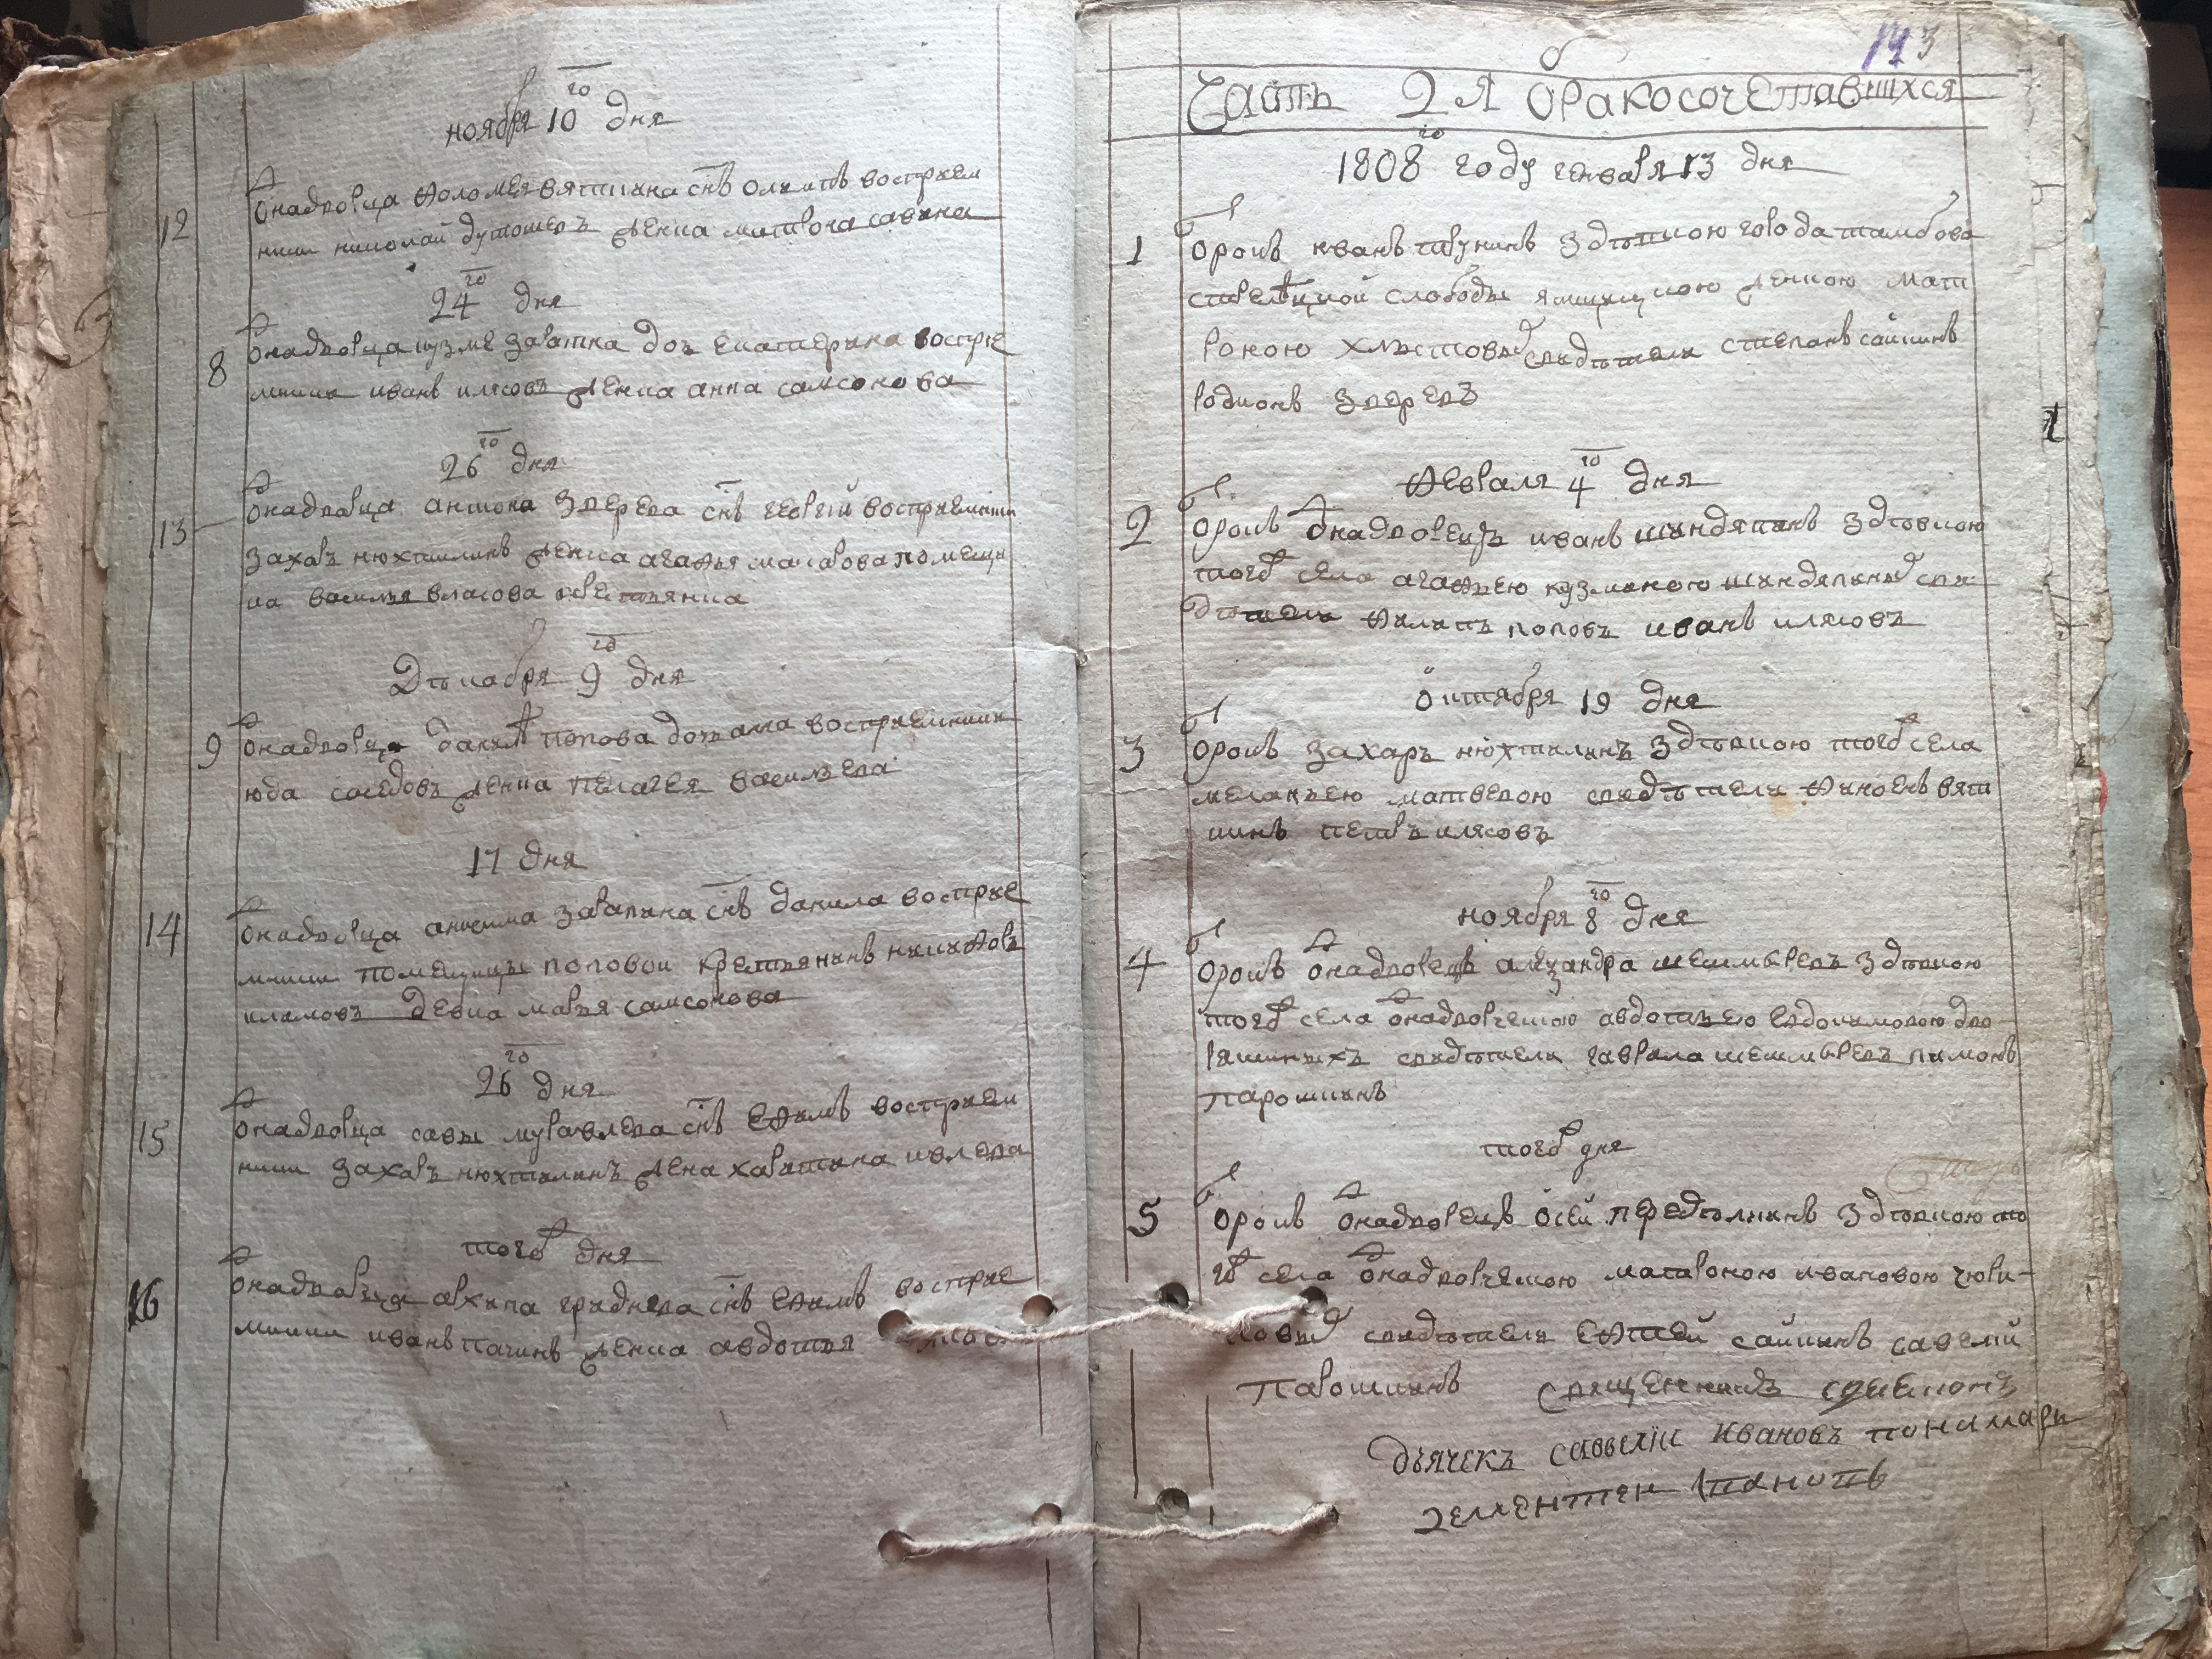 ноября 10го дня
12 однадворца фоломея вяткина снъ олимпъ восприем
ники николай дутошевъ девка матрона савина
24го дня
8 однадворца кузме заватка доч екатерина воспре
мники иванъ илясовъ девка анна самсонова
26го дня
13 однадворца антона зверева снъ георгий восприемники
захаръ нюхтилинъ девка агафья макарова помещи
ка василья власова крестьянка
Декабря 9го дня
9 однадворца данилы попова дочь анна восприемники
юда соседовъ девка пелагея васильева
17 дня
14 однадворца анисима завапкина снъ данила восприе
мники помещицы поповой крестьянинъ никифоръ
климовъ девка марья самсонова
26го дня
15 однадворца савы муравлева снъ ефимъ восприем
ники захаръ нюхтилинъ дека харитина ивлева
того дня
16 однадворца архипа гриднева снъ ефимъ восприе
мники иванъ пачинъ девка авдотья
143
Часть 2я бракосочетавшихся
1808го году генваря 13 дня
1 отрокъ иванъ трунинъ з девкою города тамбова
стрелецкой слободы ямщицкою девкою мат
роною хлыстовой свидетели степанъ сайкинъ
родионъ зверевъ
февраля 4го дня
2 отрокъ однадворецъ иванъ шиндяпинъ з девкою
того села агафьею кузминою шиндяпиной сви
детели филипъ поповъ иванъ илясовъ
октября 19 дня
3 отрокъ захаръ нюхтилинъ з девкою того села
меланьею матвевою свидетели финоенъ вят
кинъ петръ илясовъ
ноября 8го дня
4 отрокъ однадворецъ алезандра шешмыревъ з девкою
того села однадворческою авдотьею евдокимовою дво
рянкиныхъ свидетели гаврила шешмыревъ пимонъ
парошкинъ
того дня
5 отрокъ однадворецъ осей переделкинъ з девкою то
го села однадворческою матроною ивановою чюри
ловой свидетели ефтей сайкинъ савелий
парошкинъ священникъ симионъ
дьячекъ савелiи ивановъ пономарь